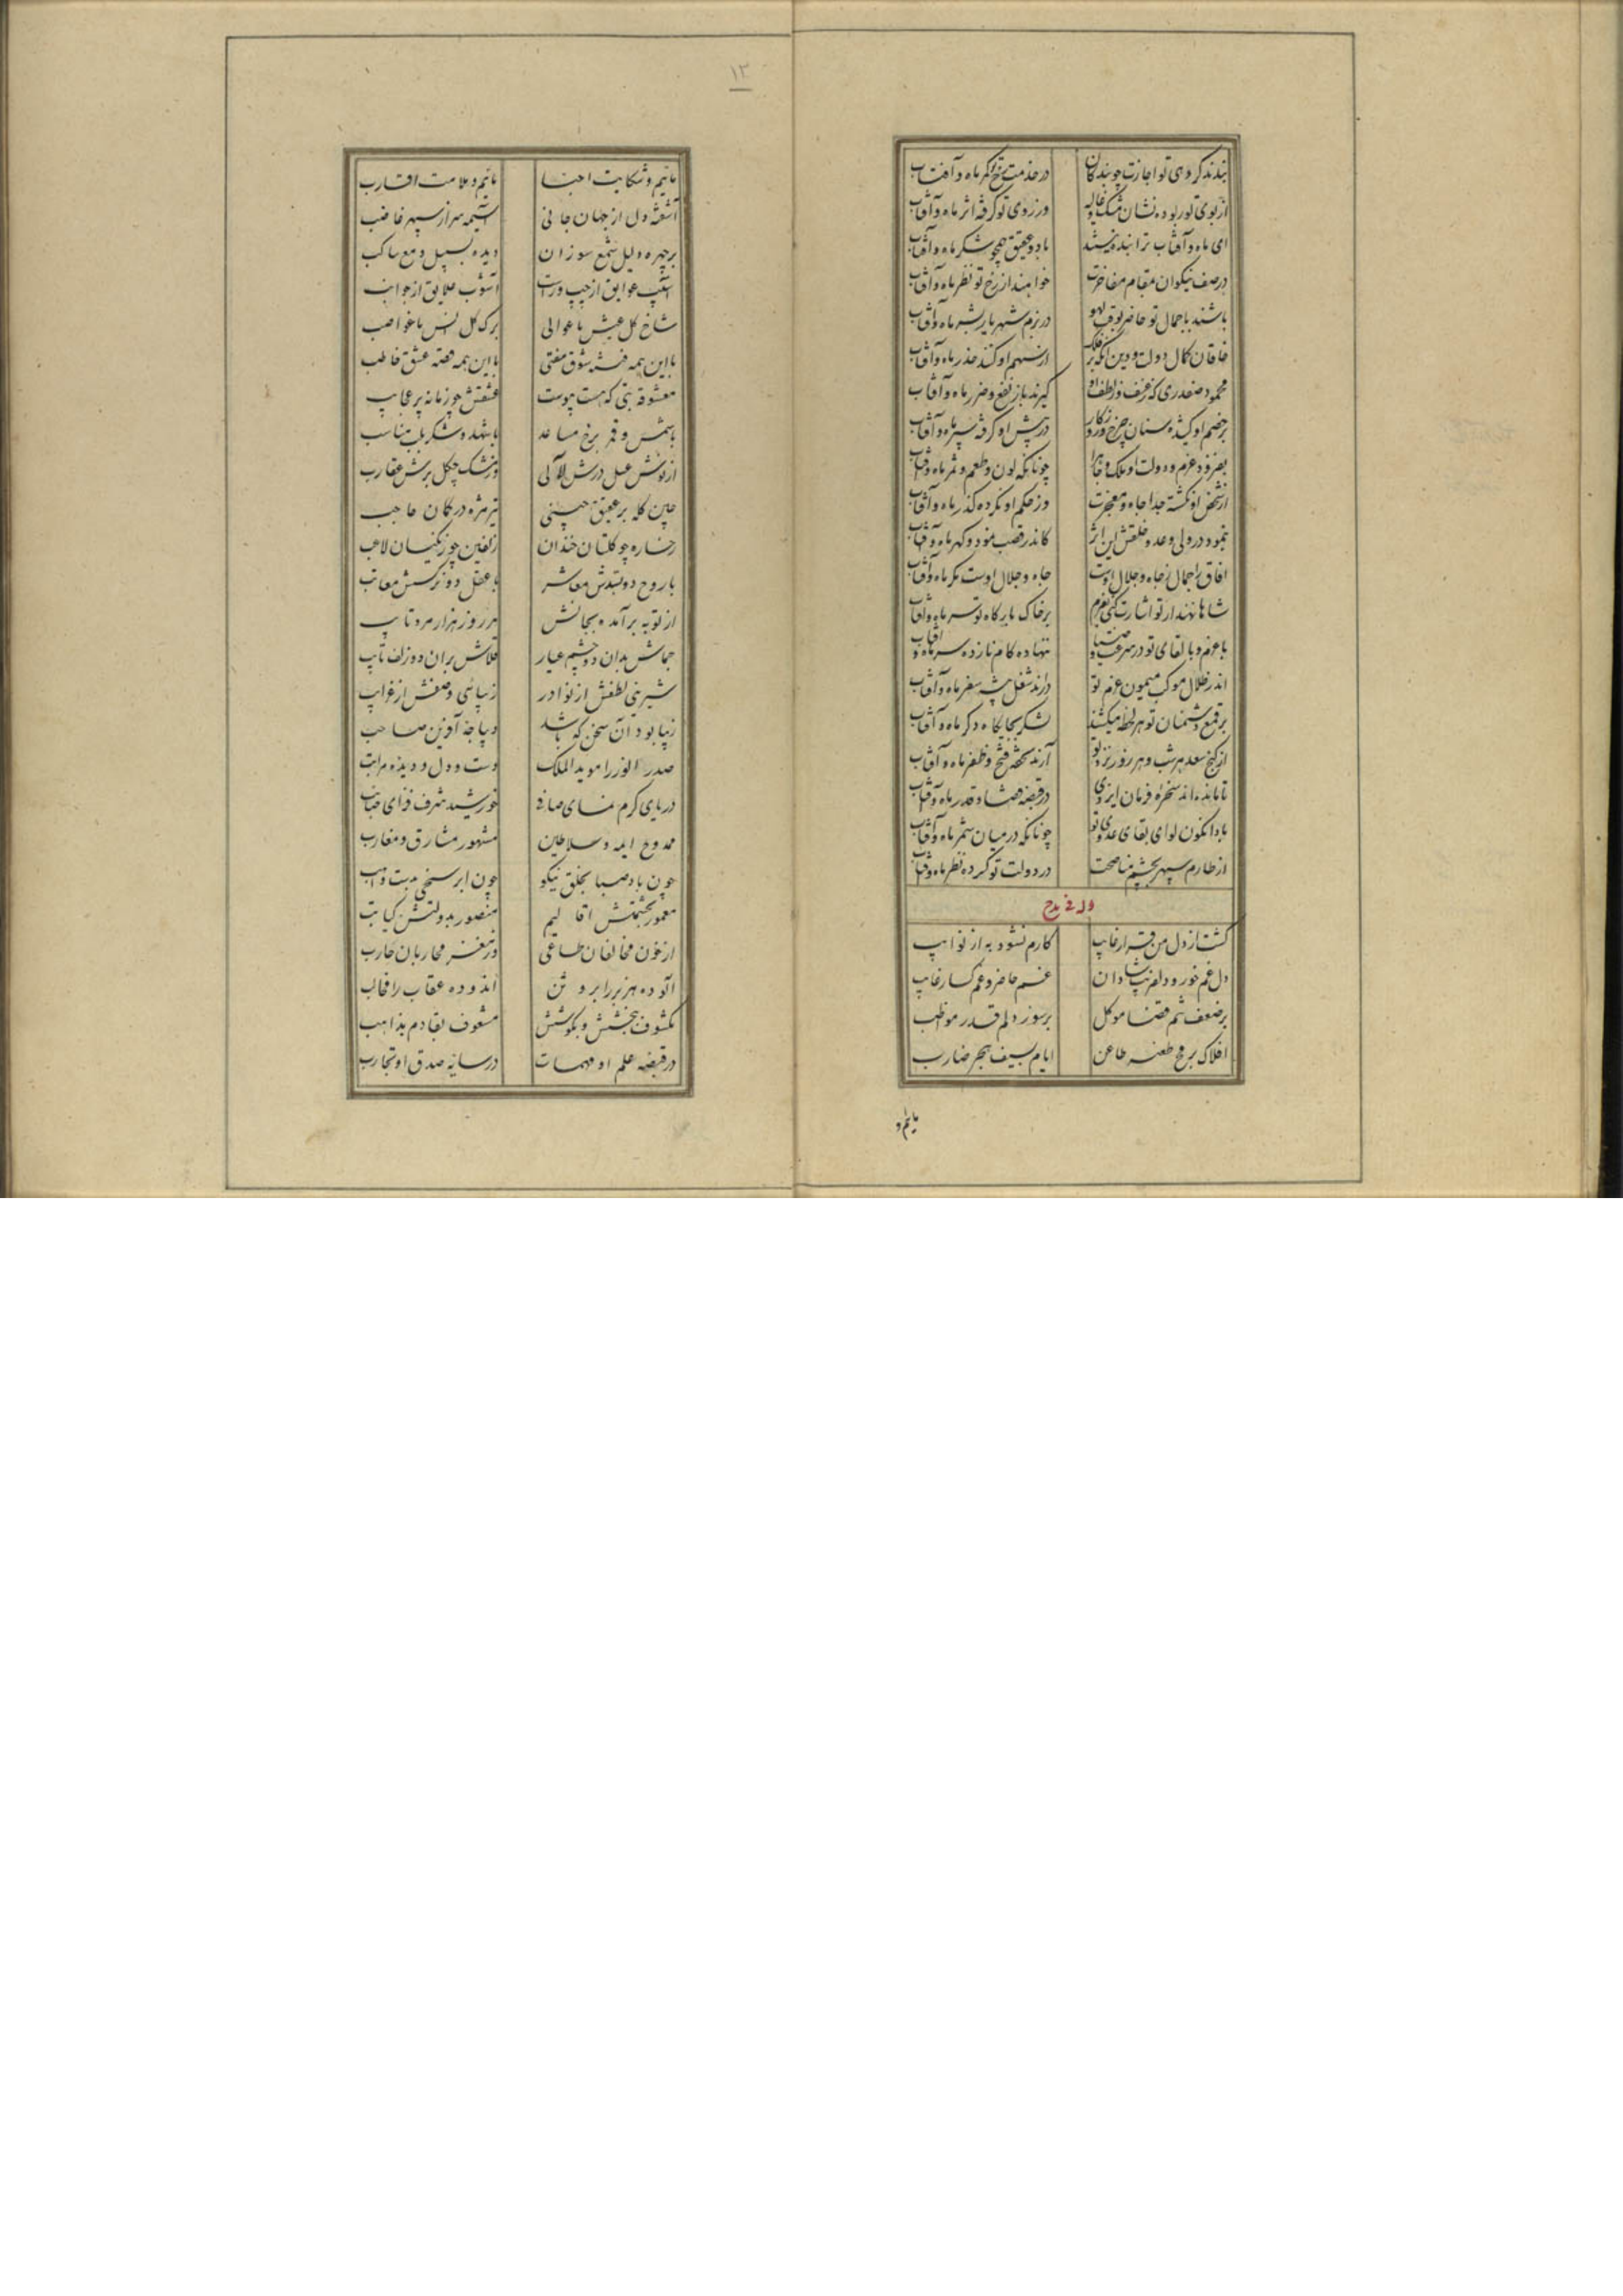 بندند گر دهی تو اجازت چو بندگان در خدمت تو کمر ماه و آفتاب
از بوی تو ربوده نشان مشک و غالیه وز روی تو گرفته اثر ماه و آفتاب
ای ماه و آفتاب ترا بنده نیستند با دو عقیق همچو شکر ماه و آفتاب
در صف نیکوان بمقام مفاخرت خواهند از رخ تو نظر ماه و آفتاب
باشند با جمال تو حاضر بوقت لهو در بزم شهریار بشر ماه و آفتاب
خاقان کمال دولت و دین آنکه بر فلک از سهم او کنند حذر ماه و آفتاب
محمود صفدری که ز عنف و ز لطف او گیرند باز نفع و ضرر ماه و آفتاب
بر خصم او کشیده سنان چرخ و روزگار در پیش او گرفته سپر ماه و آفتاب
بفزود عزم و دولت او ملک و جاه را چونانکه لون و طعم و ثمر ماه و آفتاب
از شخص او نگشته جدا جاه و مفخرت وز حکم او نکرده گذر ماه و آفتاب
بنمود در ولی و عدو خلقش این اثر کاندر قصب نمود و گهر ماه و آفتاب
آفاق را جمال ز جاه و جلال اوست جاه و جلال اوست مگر ماه و آفتاب
شاها نهند ار تو اشارت کنی بعزم بر خاک بارگاه تو سر ماه و آفتاب
با عزم و با لقای تو در سرعت و ضیا ننهاده گام نازده سر ماه و آفتاب
اندر ظلال موکب میمون عزم تو دارند شغل پیشه سفر ماه و آفتاب
بر قمع دشمنان تو هر لحظه میکشند لشکر بجایگاه دگر ماه و آفتاب
از گنج سعد هر شب و هر روز نزد تو آرند تحفه فتح و ظفر ماه و آفتاب
تا مانده‌اند سخره فرمان ایزدی در قبضه قضا و قدر ماه و آفتاب
بادا نگون لوای بقای عدوی تو چونانکه در میان شمر ماه و آفتاب
از طارم سپهر بچشم مناصحت در دولت تو کرده نظر ماه و آفتاب
وله فی مدح
گشت از دل من قرار غایب کارم نشود به از نوایب
دل غم خور و دلفریب شادان غم حاضر و غمگسار غایب
بر ضعف تنم قضا موکل بر سوز دلم قدر مواظب
افلاک برمح طعنه طاعن ایام بسیف هجر ضارب
مائیم و
۱۳
مائیم و شکایت احبا مائیم و ملامت اقارب
آشفته دل از جهان جانی آسیمه سر از سپهر غاضب
بر چهره دلیل شمع سوزان دیده بسیل دمع ساکب
آسیب عوایق از چپ و راست آشوب علایق از جوانب
شاخ گل عیش با عوالی برگ گل انس با غواصب
با این همه فتنه شوق مفتی با این همه قصه عشق خاطب
معشوقه بتی که هست پیوست عشقش چو زمانه پر عجایب
با شمس و قمر برخ مساعد با شهد و شکر بلب مناسب
از نوش عسل درش لآلی وز مشک چگل برش عقارب
چین کله بر عقیق چینی تیر مژه در کمان حاجب
رخساره چو گلستان خندان زلفین چو زنگیان لاعب
با روح دو بسدش معاشر با عقل دو نرگسش معاتب
از توبه برآمده بجانش هر روز هزار مرد تایب
جماش بدان دو چشم عیار قلاش بران دو زلف تایب
شیرینی لطفش از نوادر زیبائی وصفش از غرایب
زیبا بود آن سخن که باشد دیباجه آفرین صاحب
صدر الوزرا موید الملک دست و دل و دیده مراتب
دریای کرم نمای صافی خورشید شرف فزای صایب
ممدوح ایمه و سلاطین مشهور مشارق و مغارب
چون باد صبا بخلق نیکو چون ابر سخی بدست واهب
معمور بحشمتش اقالیم منصور بدولتش کتایب
از خون مخالفان طاغی وز مغز محاربان حارب
آلوده هزبر را برو تن اندوده عقاب را مخالب
مکشوف ببخشش و بکوشش مشعوف بقادم بذاهب
در قبضه علم او مهمات در سایه صدق او تجارب